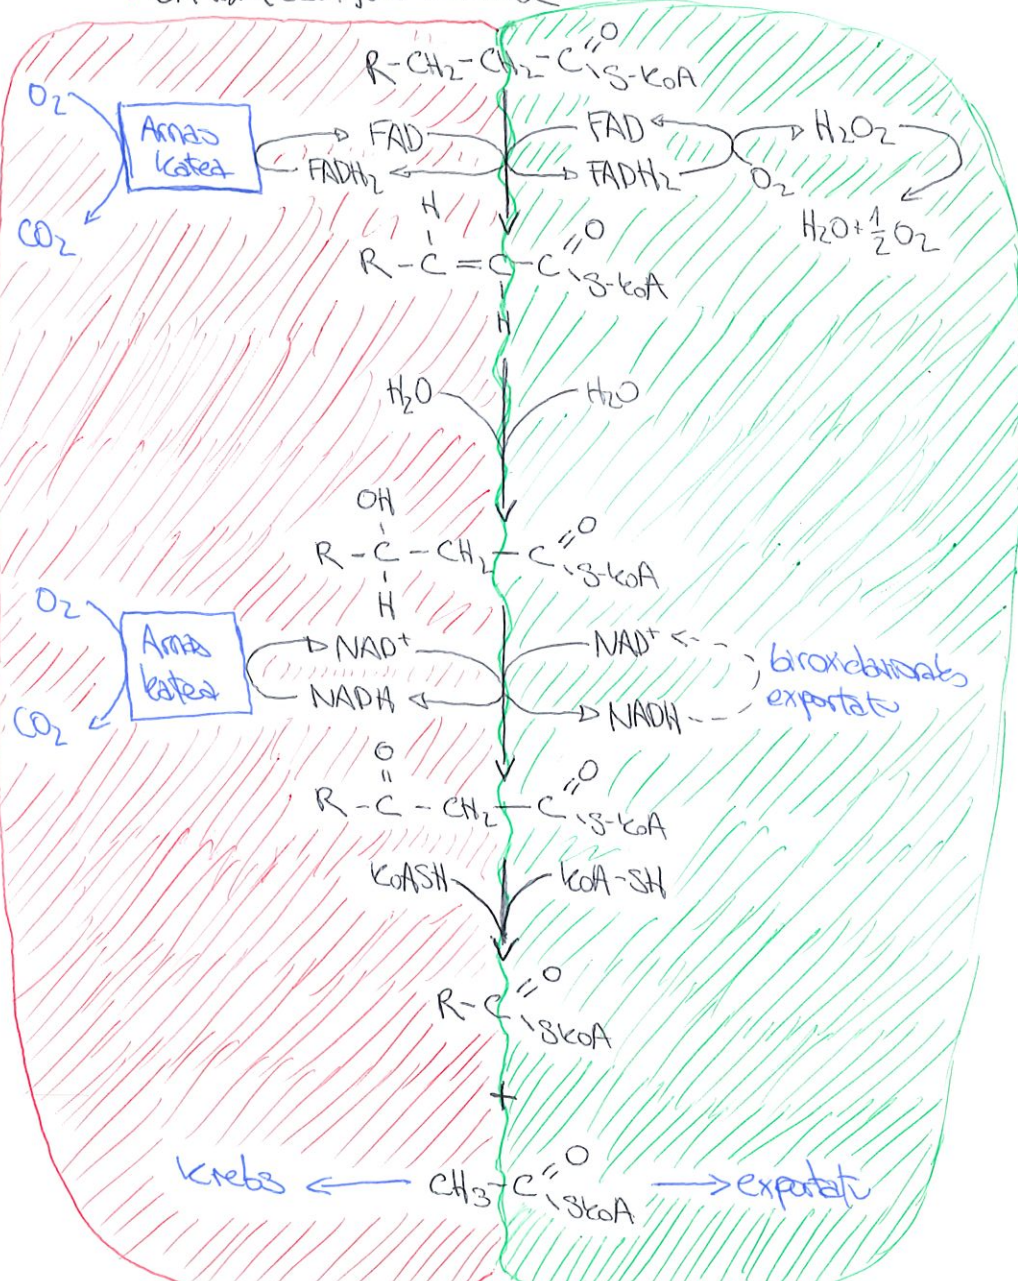 R-CH₂-CH₂-C=O
S-KoA
O₂
Arnas
katea
CO₂
FAD
FADH₂
FAD
FADH₂
O₂
H₂O₂
H₂O+½O₂
H
R-C=C-C=O
S-KoA
H
H₂O
H₂O
OH
R-C-CH₂-C=O
S-KoA
H
O₂
Arnas
katea
CO₂
NAD⁺
NADH
NAD⁺
NADH
exportatu
O
R-C-CH₂-C=O
S-KoA
KoASH
KoA-SH
R-C=O
SKoA
+
Krebs
CH₃-C=O
SKoA
exportatu